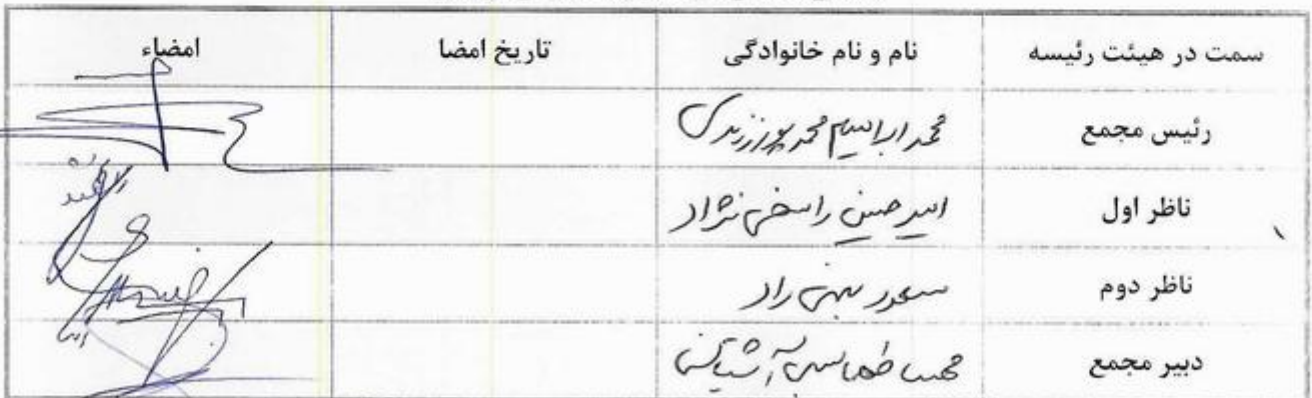 سمت در هیئت رئیسه نام و نام خانوادگی تاریخ امضا امضاء
رئیس مجمع محمد ابراهیم محمد پورزرندی
ناظر اول امیر حسین راسخی نژاد
ناظر دوم مسعود بهزاد راد
دبیر مجمع طهماسبی آشتیانی